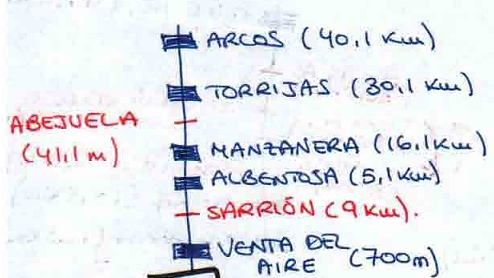 ARCOS (40,1 Km)
TORRIJAS (30,1 Km)
ABEJUELA
(41,1 m)
MANZANERA (16,1 Km)
ALBENTOSA (5,1 Km)
SARRIÓN (9 Km).
VENTA DEL
AIRE (700m)